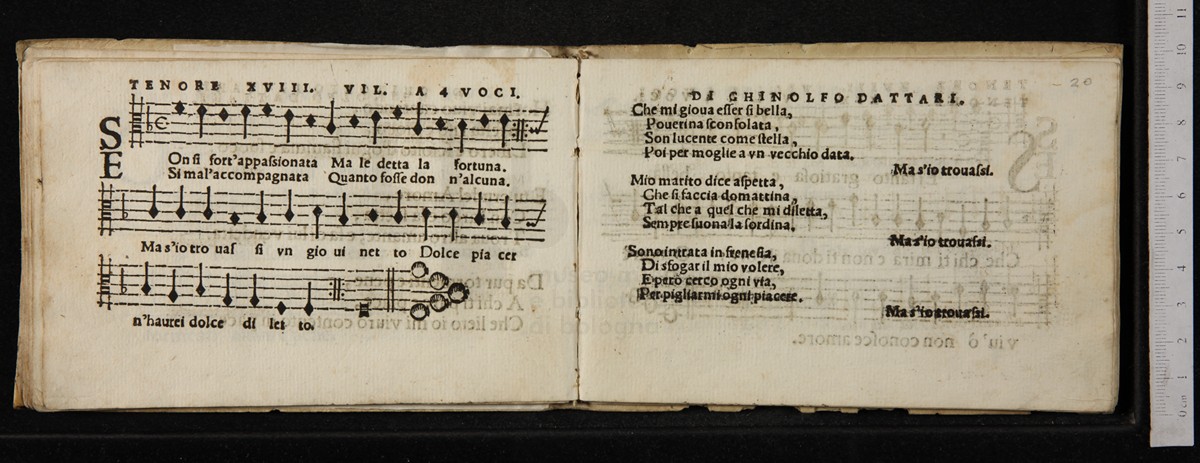 TENORE XVIII. VIL. A 4 VOCI.
SE
On si fort'appassionata Ma le detta la fortuna.
Si mal'accompagnata Quanto fosse don n'alcuna.
Ma s'io tro uas si vn gio ui net to Dolce pia cer
n'haurei dolce di let to.
20
DI GHINOLFO DATTARI.
Che mi gioua esser si bella,
Pouerina sconsolata,
Son lucente come stella,
Poi per moglie a vn vecchio data.
Ma s'io trouassi.
Mio marito dice aspetta,
Che si faccia domattina,
Tal che a quel che mi diletta,
Sempre suona la sordina.
Ma s'io trouassi.
Sono intrata in frenesia,
Di sfogar il mio volere,
E però cerco ogni via,
Per pigliarmi ogni piacere.
Ma s'io trouassi.
0 cm 1 2 3 4 5 6 7 8 9 10 11